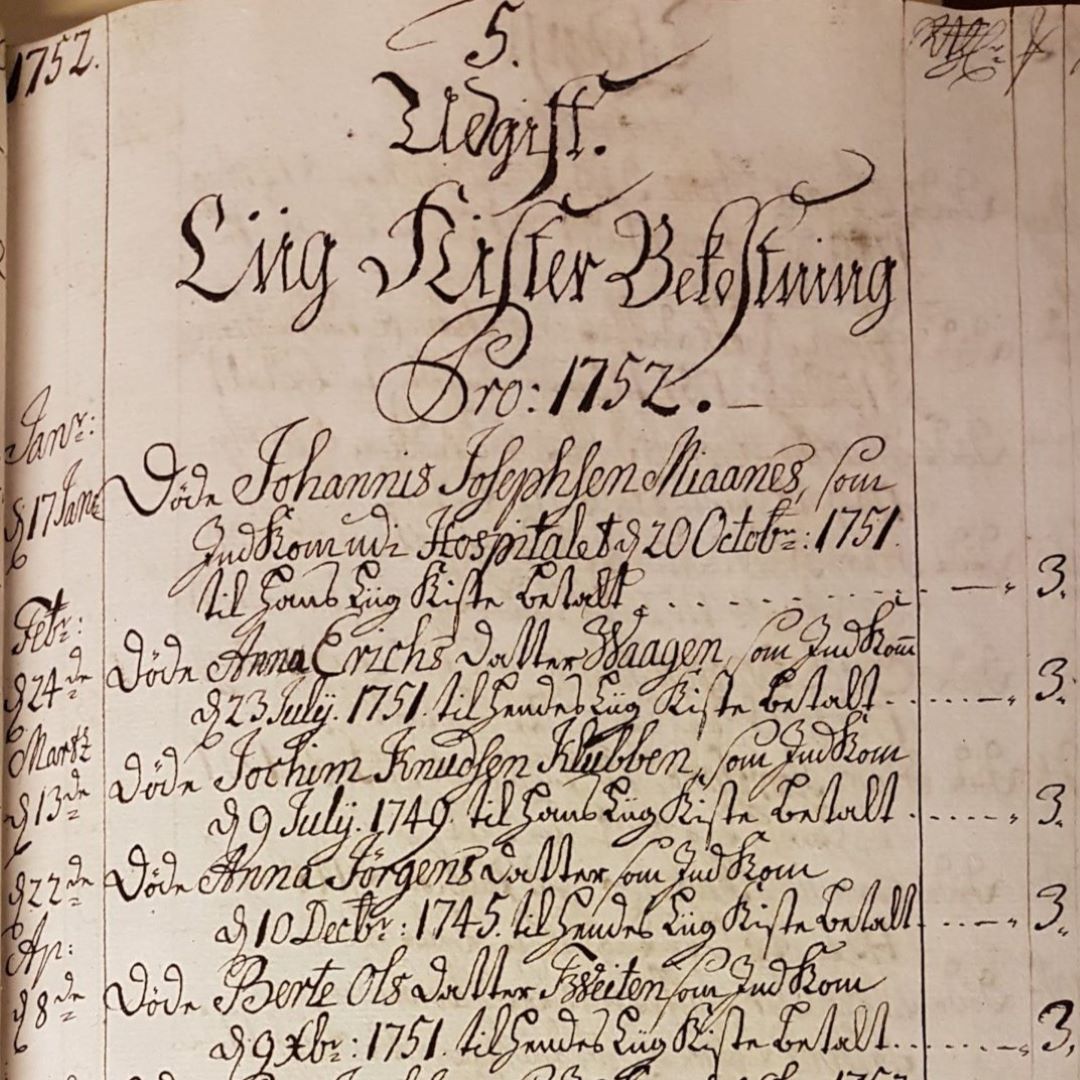 1752.
5.
Udgift.
Liig Kister Bekostning
Pro: 1752.
Janr:
d 17 Jan
Døde Johannis Josephsen Miaanes, som
IndKom udi Hospitalet d 20 Octobr: 1751.
til hans Liig Kiste betalt . . . . . . . . . — „ 3.
Febr:
d 24de
Døde Anna Erichs datter Waagen, som IndKom̅
d 23 Julÿ. 1751. til hendes Liig Kiste betalt . . . . . — „ 3.
Martz
d 13de
Døde Jochim Knudsen Klubben, som IndKom
d 9 Julÿ. 1749. til hans Liig Kiste betalt . . . . . „ 3.
d 22de
Døde Anna Jørgens datter som IndKom
d 10 Decbr: 1745. til hendes Liig Kiste betalt . . . — „ 3.
Ap:
d 8de
Døde Berte Ols datter som IndKom
d 9 Xbr: 1751. til hendes Liig Kiste betalt . . . . . — „ 3.